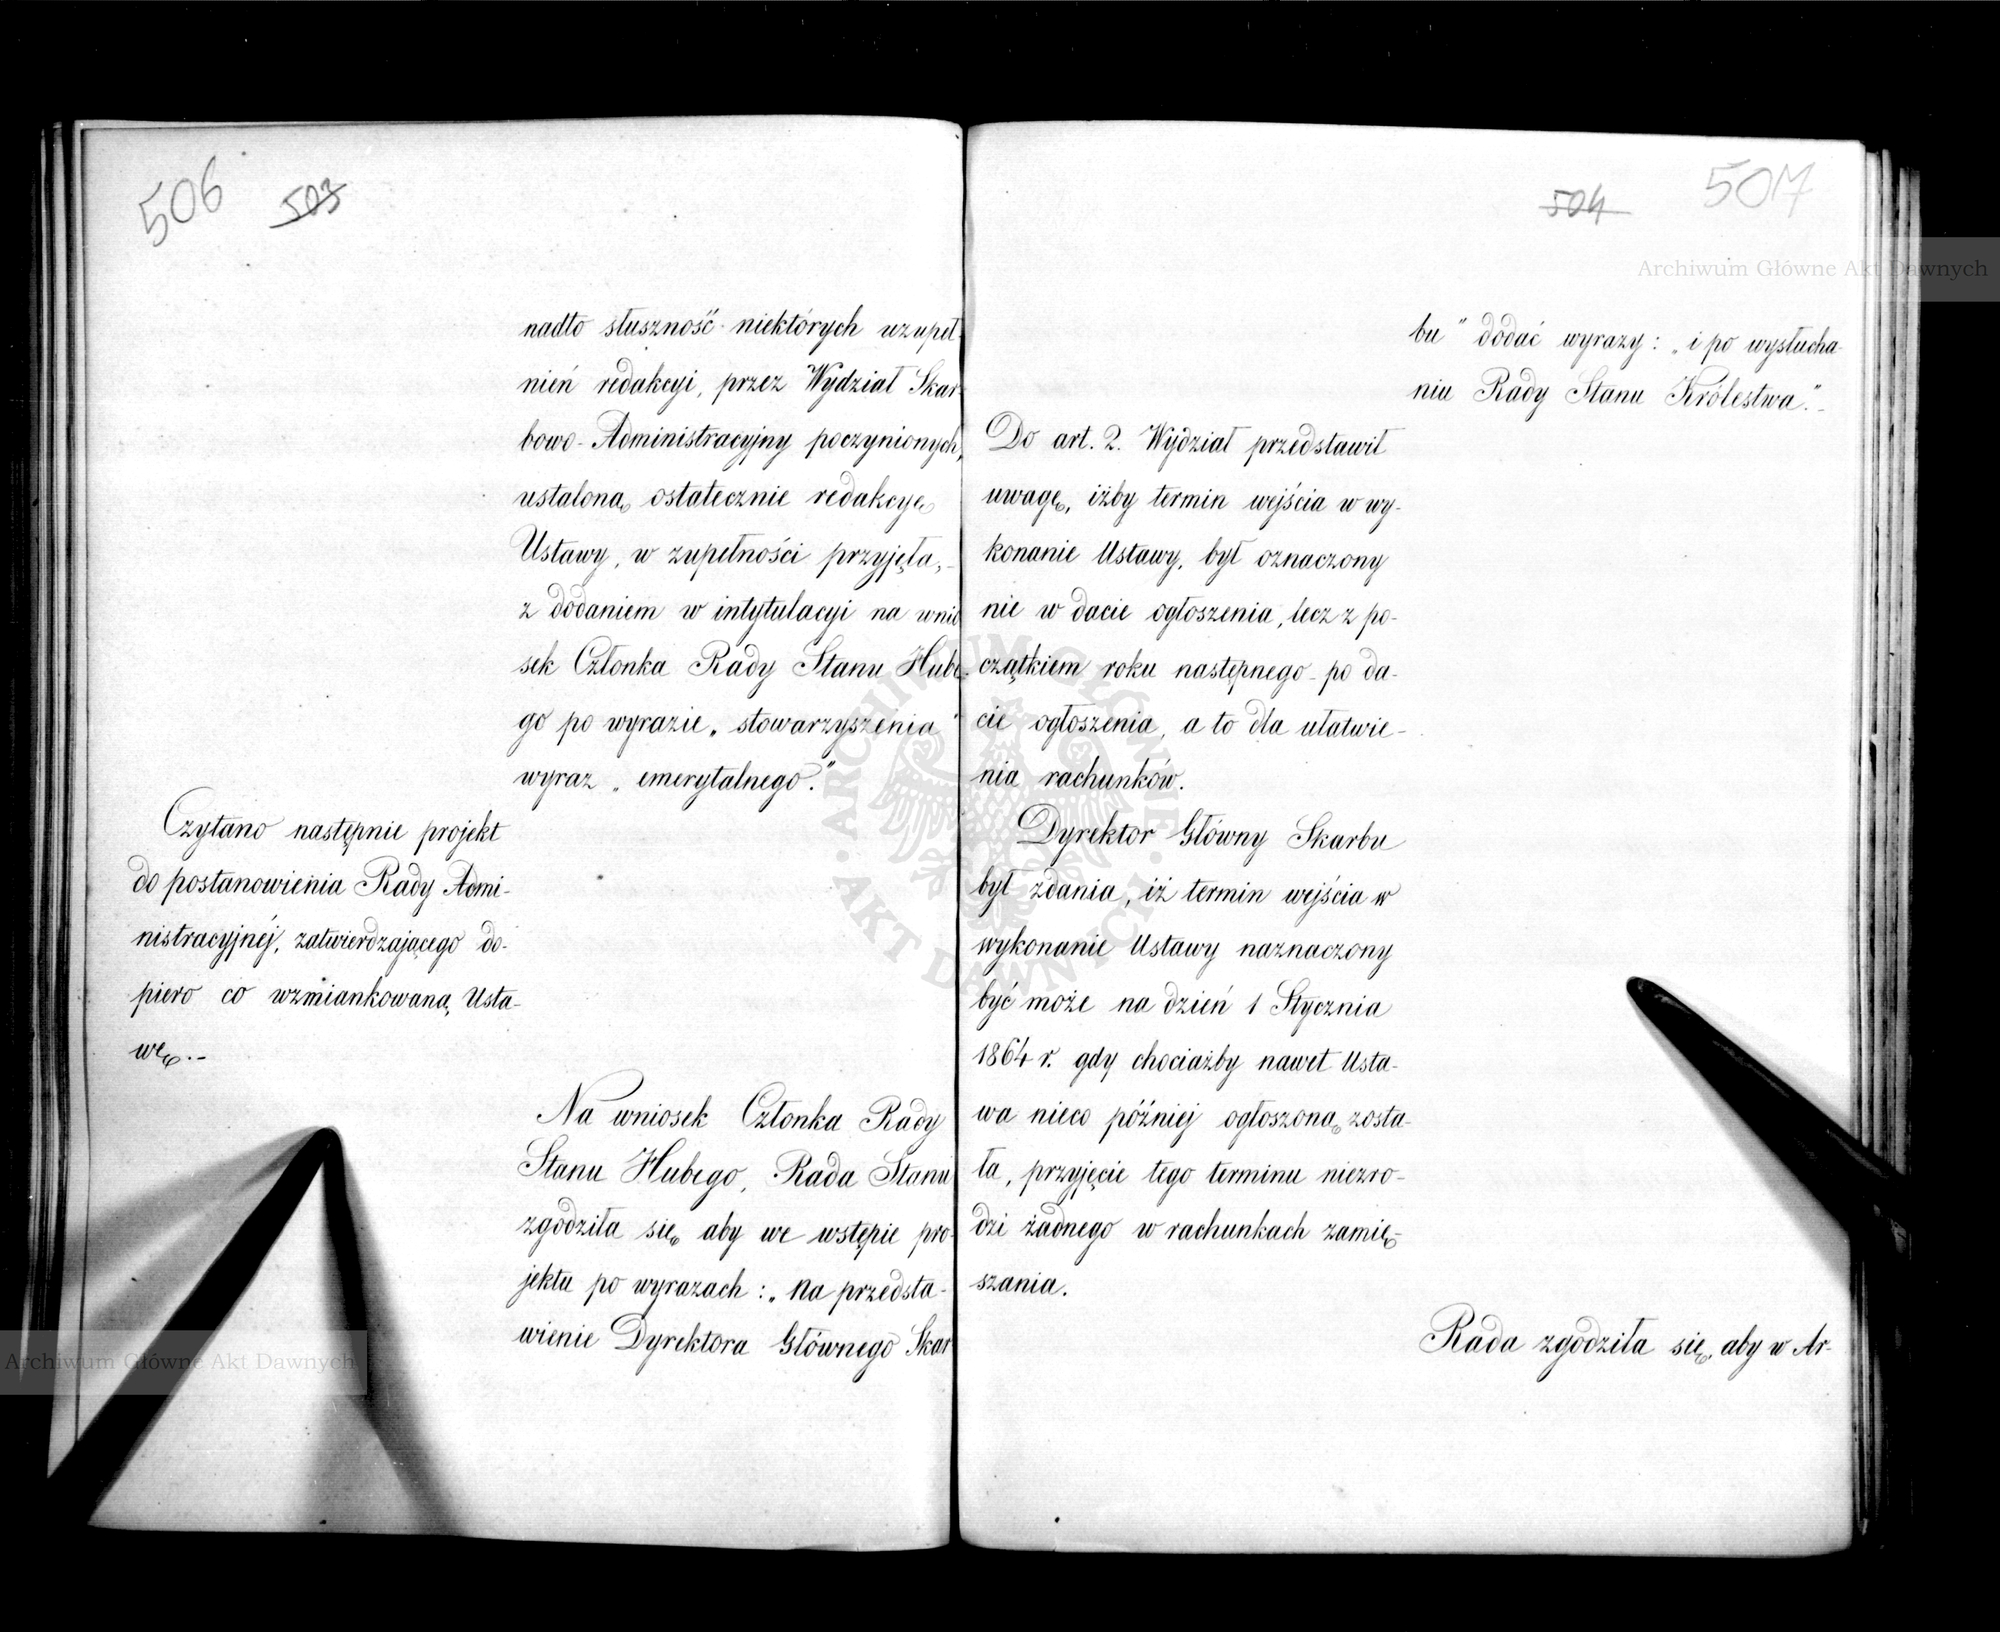 506 503
nadto słuszność niektórych uzupeł-
nień redakcyi, przez Wydział Skar-
bowo-Administracyjny poczynionych,
ustaloną ostatecznie redakcyę
Ustawy, w zupełności przyjęła,-
z dodaniem w intytulacyi na wnio
sek Członka Rady Stanu Hube-
go po wyrazie „stowarzyszenia”
wyraz „emerytalnego.”
Czytano następnie projekt
do postanowienia Rady Admi-
nistracyjnéj, zatwierdzającego do-
piero co wzmiankowaną Usta-
wę.-
Na wniosek Członka Rady
Stanu Hubego, Rada Stanu
zgodziła się aby we wstępie pro-
jektu po wyrazach: „Na przedsta-
wienie Dyrektora Głównego Skar
504 507
bu” dodać wyrazy: „i po wysłucha-
niu Rady Stanu Królestwa.”-
Do art. 2. Wydział przedstawił
uwagę, iżby termin wejścia w wy-
konanie Ustawy, był oznaczony
nie w dacie ogłoszenia, lecz z po-
czątkiem roku następnego po da-
cie ogłoszenia, a to dla ułatwie-
nia rachunków.
Dyrektor Główny Skarbu
był zdania, iż termin wejścia w
wykonanie Ustawy naznaczony
być może na dzień 1 Stycznia
1864 r. gdy chociażby nawet Usta-
wa nieco później ogłoszoną zosta-
ła, przyjęcie tego terminu niezro-
dzi żadnego w rachunkach zamię-
szania.
Rada zgodziła się, aby w Ar-
Archiwum Główne Akt Dawnych
Archiwum Główne Akt Dawnych
ARCHIWUM GŁÓWNE AKT DAWNYCH